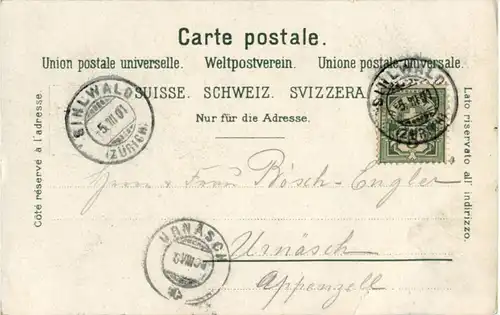 Carte postale.
Union postale universelle. Weltpostverein. Unione postale universale.
SUISSE. SCHWEIZ. SVIZZERA.
Nur für die Adresse.
Côté réservé à l'adresse.
Lato riservato all' indirizzo.
SIHLWALD
-5.VIII.01
(ZÜRICH)
SIHLWALD
-5.VIII.01
(ZÜRICH)
Herrn & Frau Bösch-Engler
Urnäsch
Appenzell
URNÄSCH